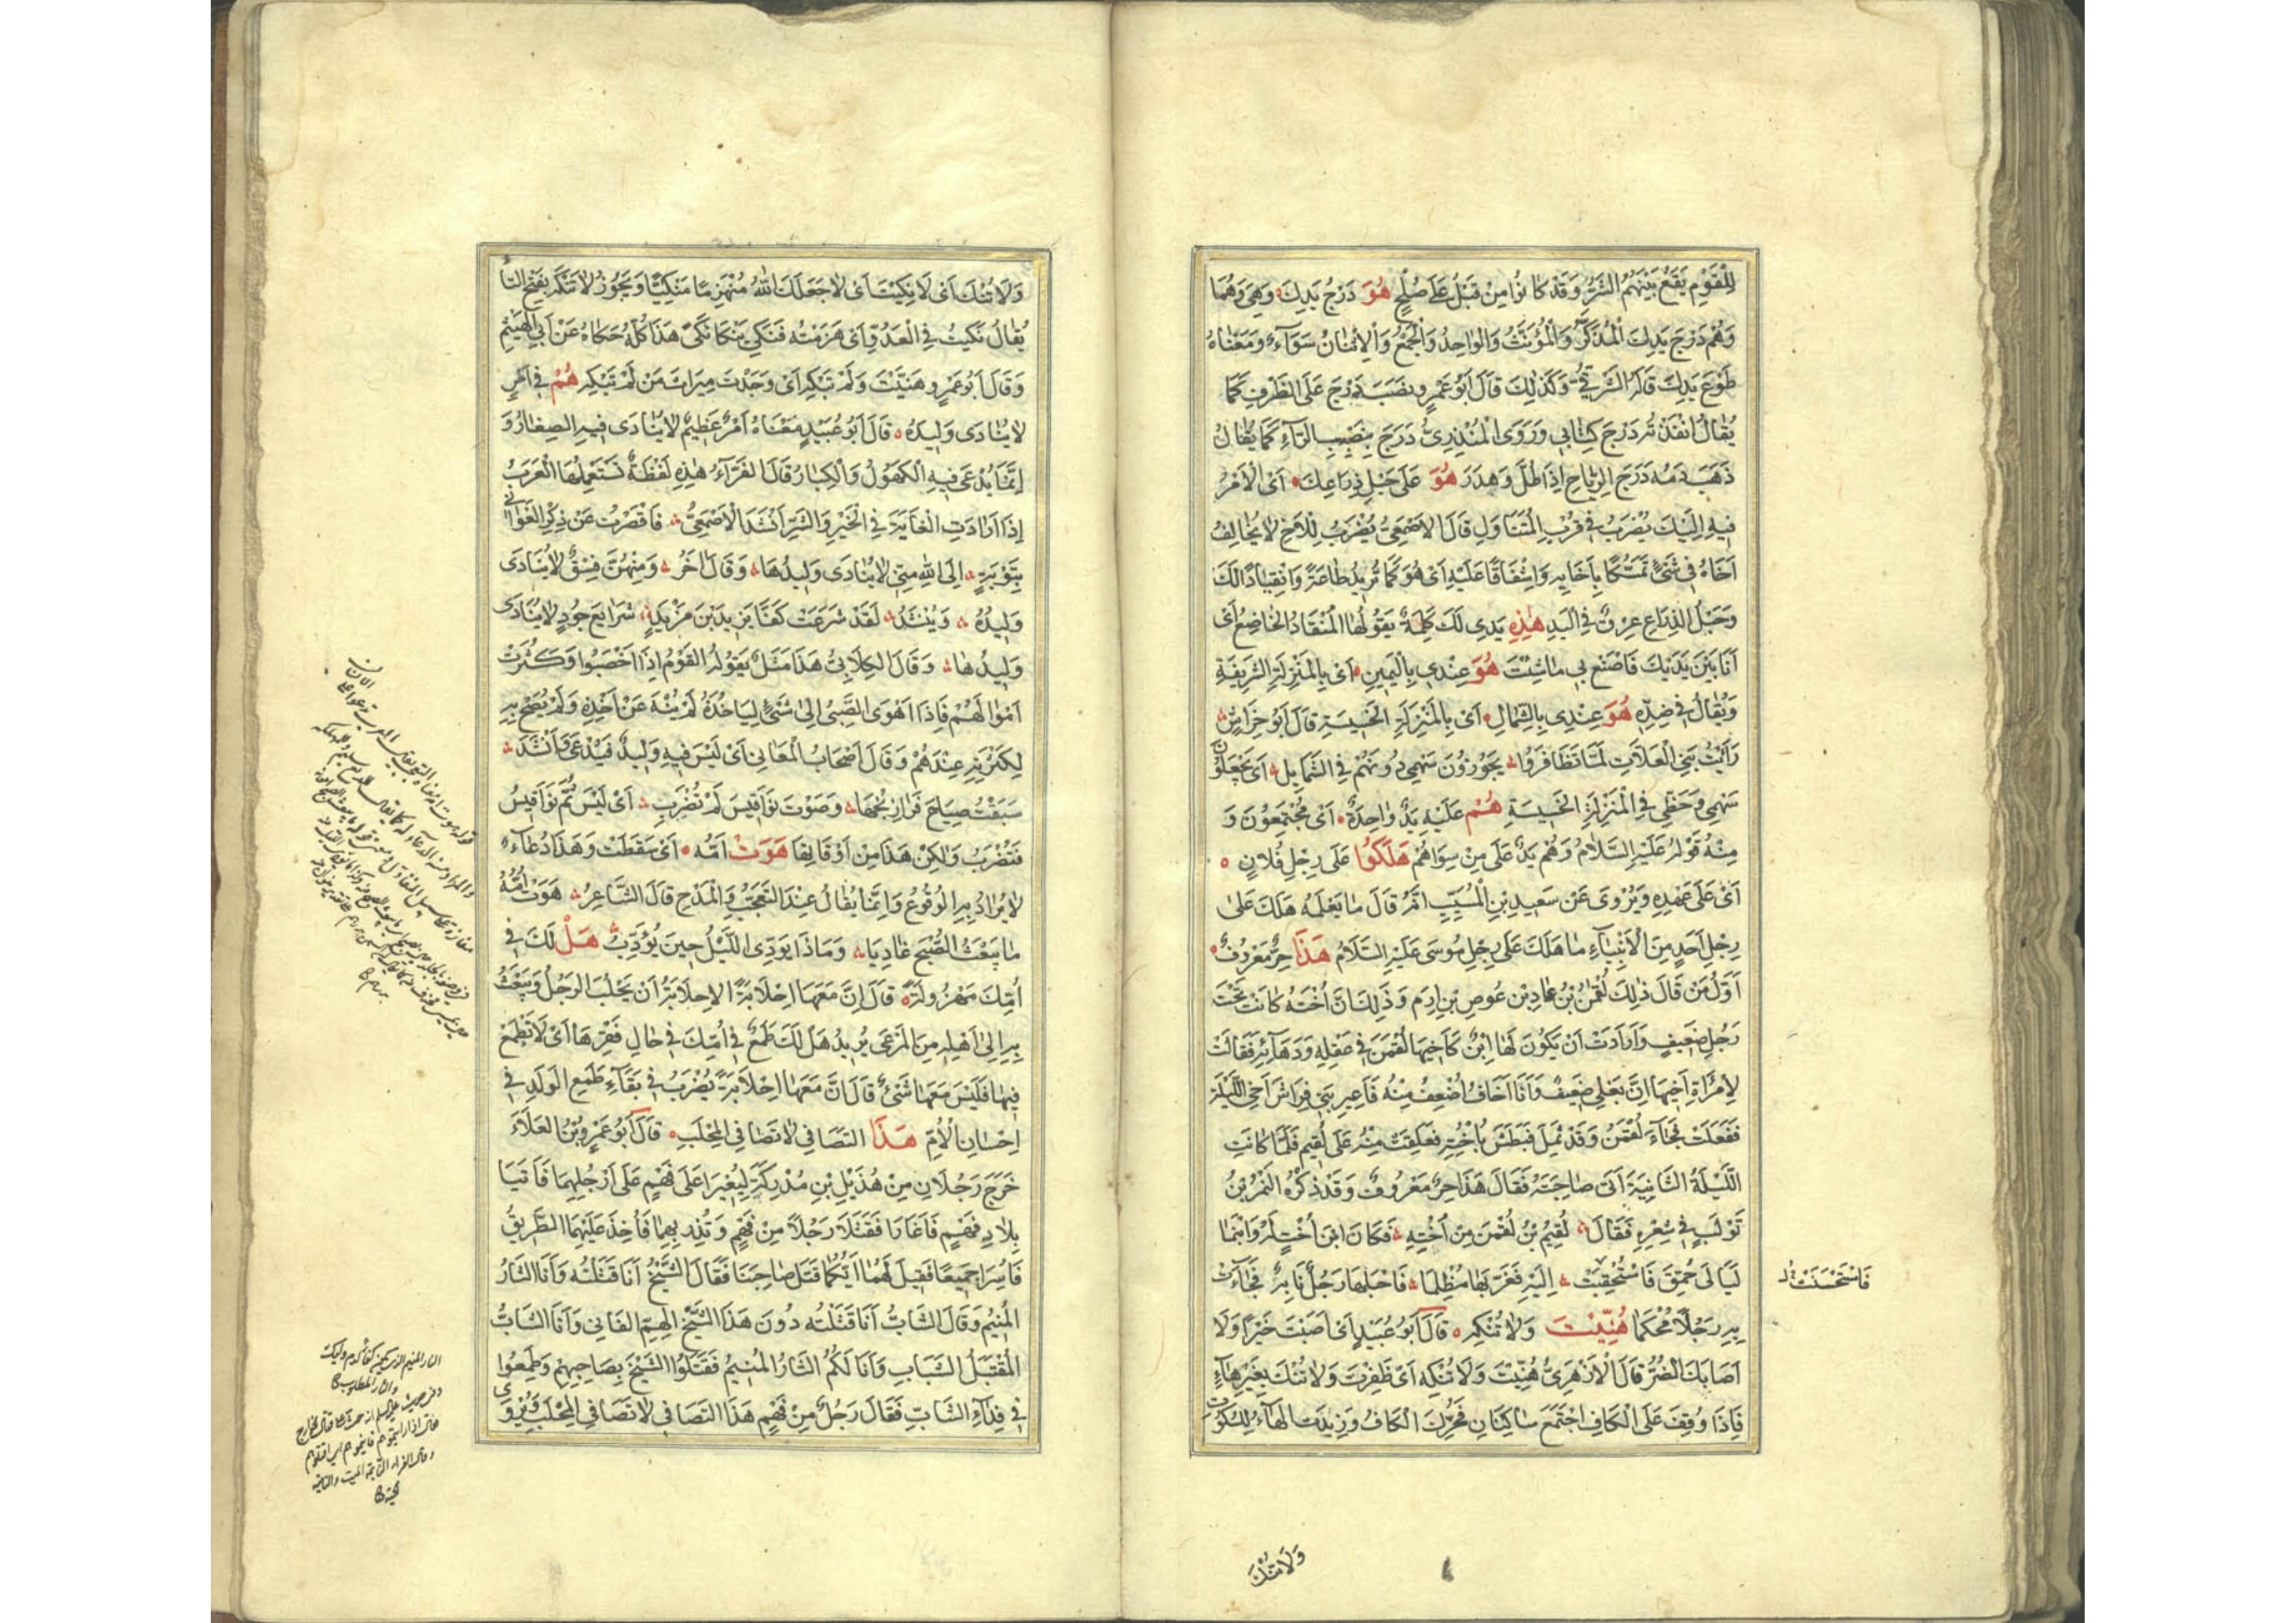 لِلْقَوْمِ يَقَعُ بَيْنَهُمُ الشَّرُّ وَقَدْ كَانُوا مِنْ قَبْلُ عَلَى صُلْحٍ هُوَ دَرْجُ يَدِكَ وَهِيَ وَهُمَا
وَهُمْ دَرْجَ يَدِكَ الْمُذَكَّرُ وَالْمُؤَنَّثُ وَالْوَاحِدُ وَالْجَمْعُ وَالْاِثْنَانْ سَوَآءٌ وَمَعْنَاهُ
طَوْعَ يَدِكَ قَالَهُ الشَّرْقِيُّ وَكَذٰلِكَ قَالَ اَبُو عَمْرٍو نَصَبَ دَرْجَ عَلَى الظَّرْفِ كَمَا
يُقَالُ اَنْفَذْتُهُ دَرْجَ كِتَابِي وَرَوَى الْمُنْذِرِيُّ دَرَجَ بِنَصْبِ الرَّاءِ كَمَا يُقَالُ
ذَهَبَ دَمُهُ دَرَجَ الرِّيَاحِ اِذَا طُلَّ وَهَدَرَ هُوَ عَلَى حَبْلِ ذِرَاعِكَ اَىِ الْاَمْرُ
فِيهِ اِلَيْكَ يُضْرَبُ فِي قُرْبِ الْمُتَنَاوَلِ قَالَ الْاَصْمَعِيُّ يُضْرَبُ لِلْاَخِ لَا يُخَالِفُ
اَخَاهُ فِي شَيْءٍ تَمَسُّكًا بِاِخَايِهِ وَاِشْفَاقًا عَلَيْهِ اَىْ هُوَ كَمَا تُرِيدُ طَاعَةً وَانْقِيَادًا لَكَ
وَحَبْلُ الذِّرَاعِ عِرْقٌ فِي الْيَدِ هٰذِهِ يَدِى لَكَ كَلِمَةٌ يَقُولُهَا الْمُنْقَادُ الْخَاضِعُ اَىْ
اَنَا بَيْنَ يَدَيْكَ فَاصْنَعْ بِي مَا شِئْتَ هُوَ عِنْدِى بِالْيَمِينِ اَىْ بِالْمَنْزِلَةِ الشَّرِيفَةِ
وَيُقَالُ فِي ضِدِّهِ هُوَ عِنْدِى بِالشِّمَالِ اَىْ بِالْمَنْزِلَةِ الْخَسِيسَةِ قَالَ اَبُو خِرَاشٍ
رَاَيْتُ بَنِي الْعَلَّاتِ لَمَّا تَظَافَرُوا يَجُوزُونَ سَهْمِي دُونَهُمْ فِي الشَّمَايِلِ اَىْ يَجْعَلُونَ
سَهْمِي وَحَظِّي فِي الْمَنْزِلَةِ الْخَسِيسَةِ هُمْ عَلَيْهِ يَدٌ وَاحِدَةٌ اَىْ مُجْتَمِعُونَ وَ
مِنْهُ قَوْلُهُ عَلَيْهِ السَّلَامُ وَهُمْ يَدٌ عَلَى مِنْ سِوَاهُمْ هَلَكُوا عَلَى رِجْلِ فُلَانٍ
اَىْ عَلَى عَهْدِهِ وَيُرْوَى عَنْ سَعِيدِ بْنِ الْمُسَيِّبِ اَنَّهُ قَالَ مَا يَعْلَمُهُ هَلَكَ عَلَى
رِجْلِ اَحَدٍ مِنَ الْاَنْبِيَآءِ مَا هَلَكَ عَلَى رِجْلِ مُوسَى عَلَيْهِ السَّلَامُ هَذَا حِرٌّ مَعْرُوفٌ
اَوَّلُ مَنْ قَالَ ذٰلِكَ لُقْمٰنُ بْنُ عَادِ بْنِ عُوصِ بْنِ اِرَمَ وَذٰلِكَ اَنَّ اُخْتَهُ كَانَتْ تَحْتَ
رَجُلٍ ضَعِيفٍ وَاَرَادَتْ اَنْ يَكُونَ لَهَا اِبْنٌ كَاَخِيهَا لُقْمَنَ فِي عَقْلِهِ وَدَهَآئِهِ فَقَالَتْ
لِامْرَأَةِ اَخِيهَا اِنَّ بَعْلِي ضَعِيفٌ وَاَنَا اَخَافُ اُضْعِفُ مِنْهُ فَاَعِيرِينِي فِرَاشَ اَخِى اللَّيْلَةَ
فَفَعَلَتْ فَجَآءَ لُقْمَنُ وَقَدْ ثَمِلَ فَبَطَشَ بِاُخْتِهِ فَعَلِقَتْ مِنْهُ عَلَى لُقَيْمٍ فَلَمَّا كَانَتِ
اللَّيْلَةُ الثَّانِيَةُ اَتَى صَاحِبَتَهُ فَقَالَ هَذَا حِرٌ مَعْرُوفٌ وَقَدْ ذَكَرَهُ النَّمْرُ بْنُ
تَوْلَبٍ فِي شِعْرِهِ فَقَالَ لُقَيْمُ بْنُ لُقْمَنَ مِنْ اُخْتِهِ فَكَانَ ابْنَ اُخْتٍ لَهُ وَابْنَمَا
لَيَالِىَ حُمِّقَ فَاسْتُحْقِبَتْ اِلَيْهِ فَغُرَّ بِهَا مُظْلِمَا فَاَحْبَلَهَا رَجُلٌ نَابِهٌ فَجَآءَتْ
فَاسْتَحْسَنَتْ
بِهِ رَجُلًا مُحْكَمَا هُنِّيتَ وَلَا تُنْكِهِ قَالَ اَبُو عُبَيْدٍ اَىْ اَصَبْتَ خَيْرًا وَلَا
اَصَابَكَ الضُّرُّ قَالَ الْاَزْهَرِىُّ هُنِّيتَ وَلَا تُنْكِهِ اَىْ ظَفِرْتَ وَلَا تُنْكَ بِغَيْرِ هَآءٍ
فَاِذَا وُقِفَ عَلَى الْكَافِ اجْتَمَعَ سَاكِنَانِ فَحُرِّكَ الْكَافُ وَزِيدَتِ الْهَآءُ لِلسُّكُوتِ
وَلَا تُنْكَ
وَلَا تُنْكَ اَىْ لَا نُكِيتَ اَىْ لَا جَعَلَكَ اللّٰهُ مُنْهَزِمًا مَنْكِيًّا وَيَجُوزُ لَا تَنْكَهْ بِفَتْحِ التَّاءِ
يُقَالُ نَكَيْتُ فِي الْعَدُوِّ اَىْ هَزَمْتُهُ فَنَكِىَ يَنْكَا نَكًى هَذَا كُلُّهُ حَكَاهُ عَنْ اَبِي الْهَيْثَمِ
وَقَالَ اَبُو عَمْرٍو هُنِّيتَ وَلَمْ تَنْكِهِ اَىْ وَجَدْتَ مِيرَاثَ مَنْ لَمْ تَنْكِهِ هُمْ فِي اَمْرٍ
لَا يُنَادَى وَلِيدُهُ قَالَ اَبُو عُبَيْدٍ مَعْنَاهُ اَمْرٌ عَظِيمٌ لَا يُنَادَى فِيهِ الصِّغَارُ وَ
اِنَّمَا يُدْعَى فِيهِ الْكُهُولُ وَالْكِبَارُ قَالَ الْفَرَّآءُ هٰذِهِ لَفْظَةٌ تَسْتَعْمِلُهَا الْعَرَبُ
اِذَا اَرَادَتِ الْغَايَةَ فِي الْخَيْرِ وَالشَّرِّ اَنْشَدَ الْاَصْمَعِيُّ فَاَقْصَرْتُ عَنْ ذِكْرِ الْغَوَانِي
بِتَوْبَةٍ اِلَى اللّٰهِ مِنِّي لَا يُنَادَى وَلِيدُهَا وَقَالَ اٰخَرُ وَمِنْهُنَّ فِسْقٌ لَا يُنَادَى
وَلِيدُهُ وَيُنْشَدُ لَقَدْ شَرَعَتْ كَفَّا يَزِيدَ بْنِ مَزْيَدٍ شَرَايِعَ جُودٍ لَا يُنَادَى
وَلِيدُهَا وَقَالَ الْكِلَابِيُّ هَذَا مَثَلٌ يَقُولُهُ الْقَوْمُ اِذَا اَخْصَبُوا وَكَثُرَتْ
اَمْوَالُهُمْ فَاِذَا اَهْوَى الصَّبِيُّ اِلَى شَيْءٍ لِيَاخُذَهُ لَمْ يُنْهَ عَنْ اَخْذِهِ وَلَمْ يُصَحْ بِهِ
لِكَثْرَتِهِ عِنْدَهُمْ وَقَالَ اَصْحَابُ الْمَعَانِي اَىْ لَيْسَ فِيهِ وَلِيدٌ فَيُدْعَى وَاَنْشَدَ
سَبَقْتُ صِيَاحَ فَرَارِيجِهَا وَصَوْتَ نَوَاقِيسَ لَمْ تُضْرَبِ اَىْ لَيْسَ ثَمَّ نَوَاقِيسُ
فَتُضْرَبُ وَلٰكِنْ هَذَا مِنْ اَوْقَاتِهَا هَوَتْ اُمُّهُ اَىْ سَقَطَتْ وَهَذَا دُعَآءٌ
لَا يُرَادُ بِهِ الْوُقُوعُ وَاِنَّمَا يُقَالُ عِنْدَ التَّعَجُّبِ وَالْمَدْحِ قَالَ الشَّاعِرُ هَوَتْ اُمُّهُ
مَا يَبْعَثُ الصُّبْحُ غَادِيًا وَمَاذَا يُؤَدِّى اللَّيْلُ حِينَ يُؤَدِّبُ هَلْ لَكَ فِي
اُمِّكَ مَهْزُولَةً قَالَ اِنَّ مَعَهَا اِحْلَابَةً الْاِحْلَابَةُ اَنْ يَحْلُبَ الرَّجُلُ وَيَبْعَثُ
بِهِ اِلَى اَهْلِهِ مِنَ الْمَرْعَى يُرِيدُ هَلْ لَكَ طَمَعٌ فِي اُمِّكَ فِي حَالِ فَقْرِهَا اَىْ لَا تَطْمَعْ
فِيهَا فَلَيْسَ مَعَهَا شَيْءٌ قَالَ اِنَّ مَعَهَا اِحْلَابَةً يُضْرَبُ فِي بَقَآءِ طَمَعِ الْوَلَدِ فِي
اِحْسَانِ الْاُمِّ هَذَا التَّصَافِي لَا تَصَافِي الْمِحْلَبِ قَالَ اَبُو عَمْرِو بْنُ الْعَلَاءِ
خَرَجَ رَجُلَانِ مِنْ هُذَيْلِ بْنِ مُدْرِكَةَ لِيُغِيرَا عَلَى فَهْمٍ عَلَى اَرْجُلِهِمَا فَاَتَيَا
بِلَادِ فَهْمٍ فَاَغَارَا فَقَتَلَا رَجُلًا مِنْ فَهْمٍ وَنُذِرَ بِهِمَا فَاُخِذَ عَلَيْهِمَا الطَّرِيقُ
فَاُسِرَا جَمِيعًا فَقِيلَ لَهُمَا اَيُّكُمَا قَتَلَ صَاحِبَنَا فَقَالَ الشَّيْخُ اَنَا قَتَلْتُهُ وَاَنَا الثَّارُ
الْمُنِيمُ وَقَالَ الشَّابُّ اَنَا قَتَلْتُهُ دُونَ هَذَا الشَّيْخِ الْهِمِّ الْفَانِي وَاَنَا الشَّابُّ
الْمُقْتَبَلُ الشَّبَابِ وَاَنَا لَكُمُ الثَّارُ الْمُنِيمُ فَقَتَلُوا الشَّيْخَ بِصَاحِبِهِمْ وَطَمِعُوا
فِي فِدَآءِ الشَّابِّ فَقَالَ رَجُلٌ مِنْ فَهْمٍ هَذَا التَّصَافِي لَا تَصَافِي الْمِحْلَبِ وَيُرْوَى